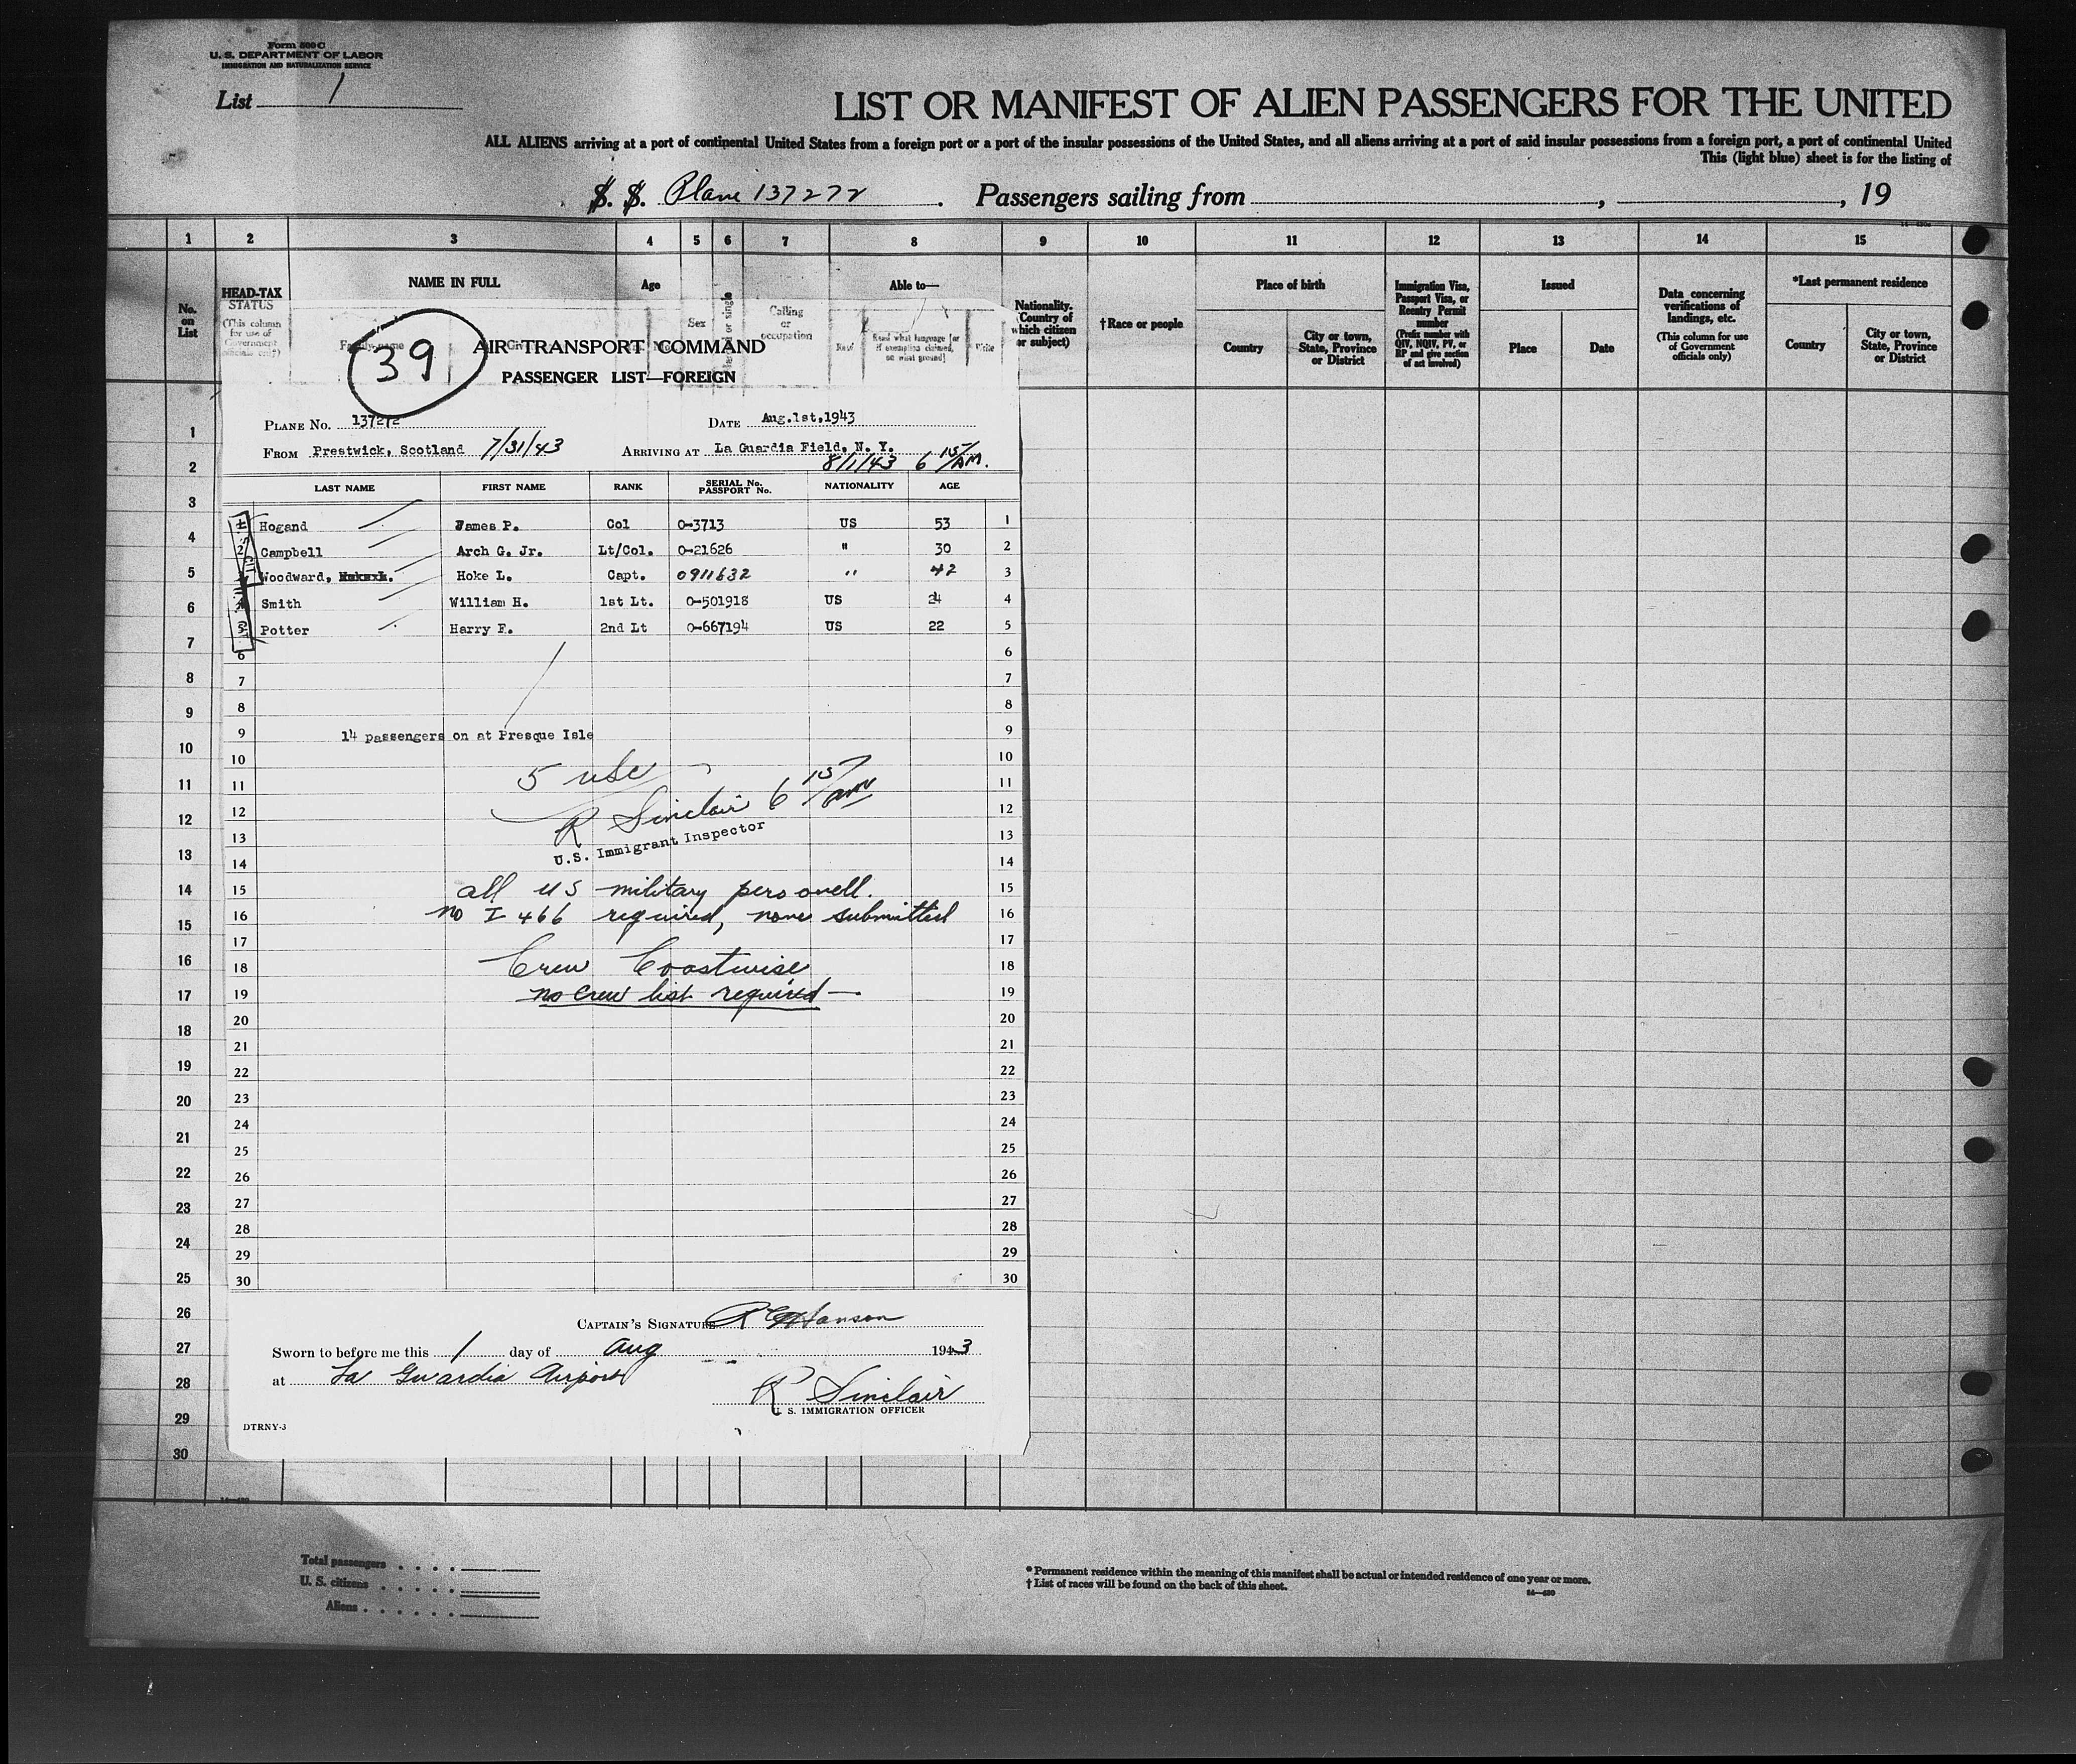 Form 500 C
U. S. DEPARTMENT OF LABOR
IMMIGRATION AND NATURALIZATION SERVICE
List 1
LIST OR MANIFEST OF ALIEN PASSENGERS FOR THE UNITED
ALL ALIENS arriving at a port of continental United States from a foreign port or a port of the insular possessions of the United States, and all aliens arriving at a port of said insular possessions from a foreign port, a port of continental United
This (light blue) sheet is for the listing of
S. S. Plane 137272 . Passengers sailing from , , 19
1 2 3 4 5 6 7 8 9 10 11 12 13 14 15
No. on List
HEAD-TAX STATUS
(This column for use of Government officials only)
NAME IN FULL
Family name
Age
Sex
Calling or occupation
Able to—
Read
Read what language [or if exemption claimed, on what ground]
Write
Nationality. (Country of which citizen or subject)
†Race or people
Place of birth
Country
City or town, State, Province or District
Immigration Visa, Passport Visa, or Reentry Permit number
(Prefix number with QIV, NQIV, PV, or RP and give section of act involved)
Issued
Place
Date
Data concerning verifications of landings, etc.
(This column for use of Government officials only)
*Last permanent residence
Country
City or town, State, Province or District
39
AIR TRANSPORT COMMAND
PASSENGER LIST—FOREIGN
PLANE No. 137272 DATE Aug.1st,1943
FROM Prestwick, Scotland 7/31/43 ARRIVING AT La Guardia Field, N. Y.
8/1/43 6 15/AM.
LAST NAME FIRST NAME RANK SERIAL No. PASSPORT No. NATIONALITY AGE
Hogand James P. Col 0-3713 US 53 1
2 Campbell Arch G. Jr. Lt/Col. 0-21626 " 30 2
Woodward, Hoke L. Capt. 0911632 " 42 3
4 Smith William H. 1st Lt. 0-501918 US 24 4
5 Potter Harry F. 2nd Lt 0-667194 US 22 5
6 6
7 7
8 8
9 14 passengers on at Presque Isle 9
10 10
5 USC
11 11
R Sinclair 6 15/AM
12 12
13 13
U.S. Immigrant Inspector
14 14
15 all US military personell. 15
16 no I 466 required, none submitted 16
17 17
18 Crew Coastwise 18
19 no crew list required— 19
20 20
21 21
22 22
23 23
24 24
25 25
26 26
27 27
28 28
29 29
30 30
CAPTAIN'S SIGNATURE Hanson
Sworn to before me this 1 day of Aug 1943
at La Guardia Airport
R Sinclair
U. S. IMMIGRATION OFFICER
DTRNY-3
1
2
3
4
5
6
7
8
9
10
11
12
13
14
15
16
17
18
19
20
21
22
23
24
25
26
27
28
29
30
Total passengers
U. S. citizens
Aliens
* Permanent residence within the meaning of this manifest shall be actual or intended residence of one year or more.
† List of races will be found on the back of this sheet.